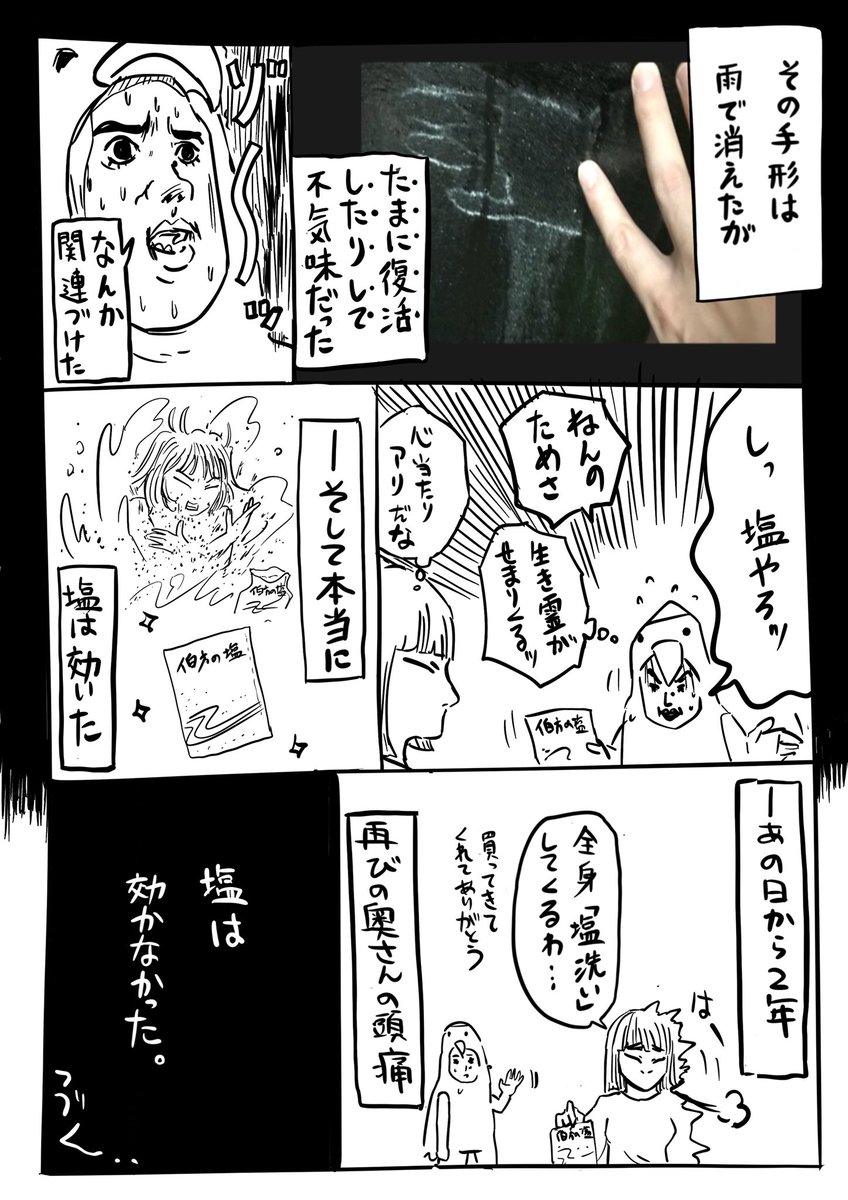 その手形は
雨で消えたが
たまに復活
したりして
不気味だった
なんか
関連づけた
しっ 塩やろッ
ねんの
ためさ
生き霊が
せまりくるッ
心当たり
アリだな
伯方の塩
ーそして本当に
伯方の塩
伯方の塩
塩は効いた
ーあの日から2年
は
全身「塩洗い」
してくるわ…
伯方の塩
買ってきて
くれてありがとう
再びの奥さんの頭痛
塩は
効かなかった。
つづく...